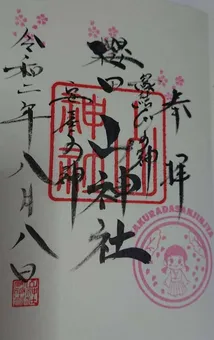 奉拝
縁結びの神
櫻田山神社
安産の神
令和二年八月八日
SAKURADASANJINJYA